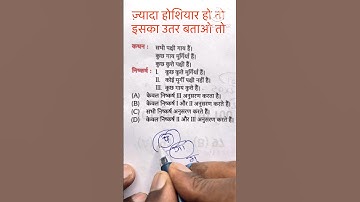 ज़्यादा होशियार हो तो
इसका उतर बताओ तो
कथन : सभी पक्षी गाय हैं।
कुछ गाय मुर्गियाँ हैं।
कुछ कुत्ते पक्षी हैं।
निष्कर्ष : I. कुछ कुत्ते मुर्गियाँ हैं।
II. कोई मुर्गी पक्षी नहीं है।
III. कुछ गाय कुत्ते हैं।
(A) केवल निष्कर्ष III अनुसरण करता है।
(B) केवल निष्कर्ष I और II अनुसरण करते हैं।
(C) सभी निष्कर्ष अनुसरण करते हैं।
(D) केवल निष्कर्ष II और III अनुसरण करते हैं।
प
गा